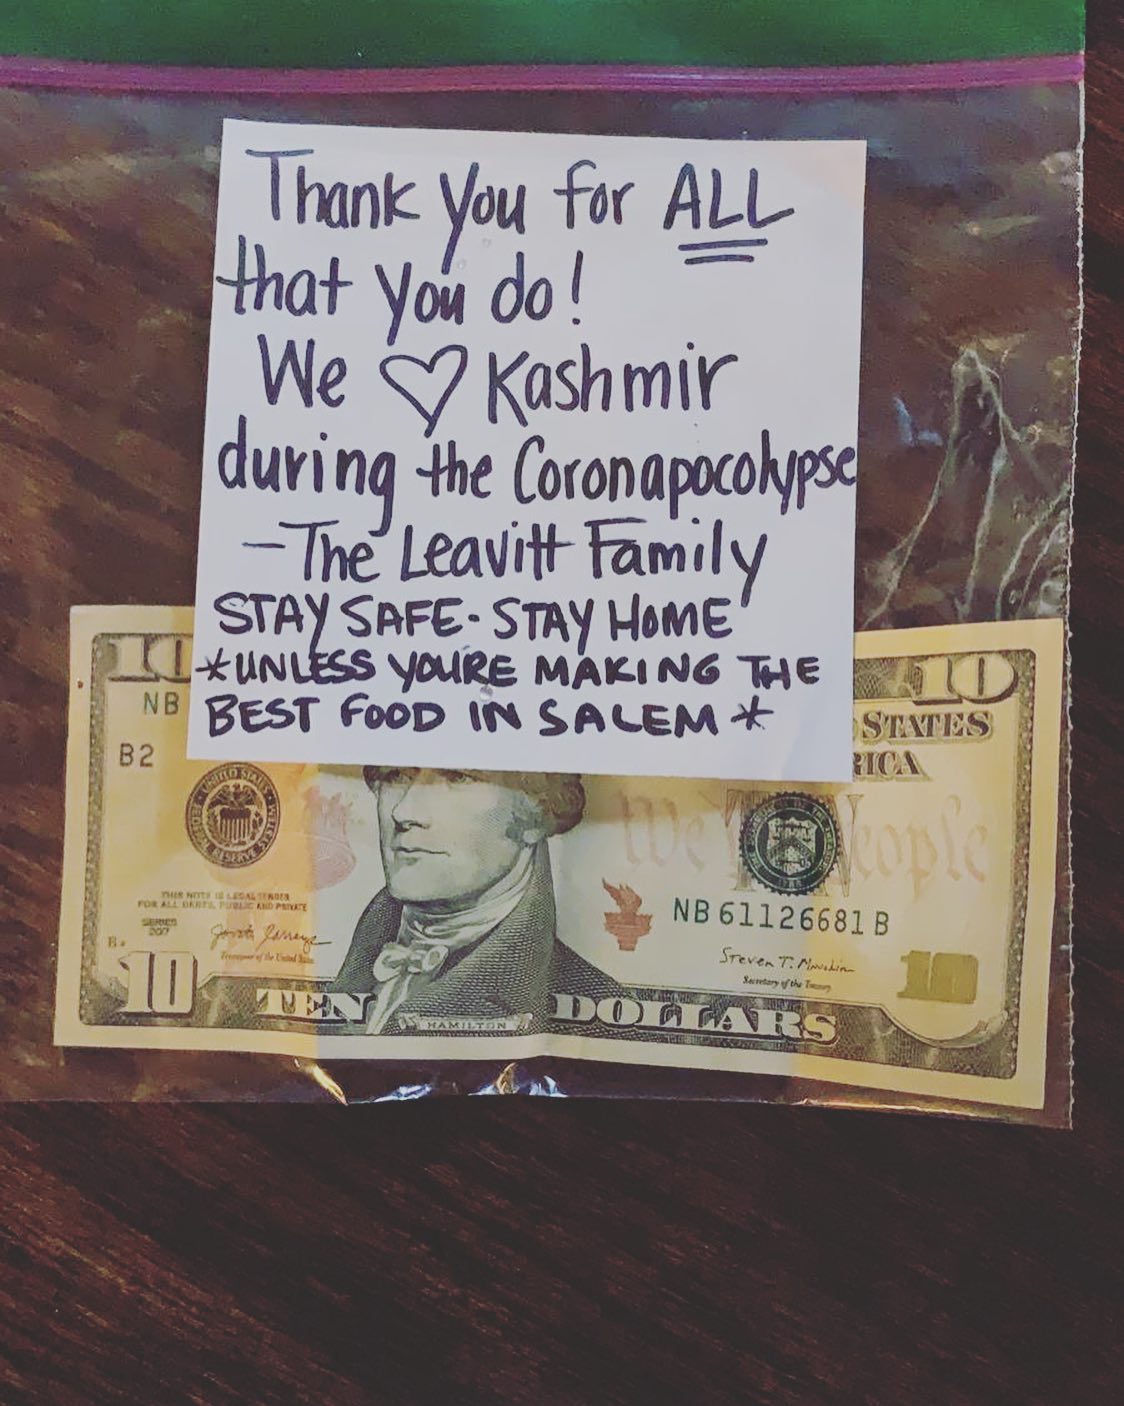 Thank you for ALL
that you do!
We ♡ Kashmir
during the Coronapocolypse
-The Leavitt Family
STAY SAFE - STAY HOME
*UNLESS YOURE MAKING THE
BEST FOOD IN SALEM*
10
10
NB
STATES
B2
RICA
We
People
THIS NOTE IS LEGAL TENDER
FOR ALL DEBTS, PUBLIC AND PRIVATE
NB 61126681 B
SERIES
2017
Steven T. Mnuchin
Treasurer of the United States
Secretary of the Treasury
10
10
TEN
HAMILTON
DOLLARS